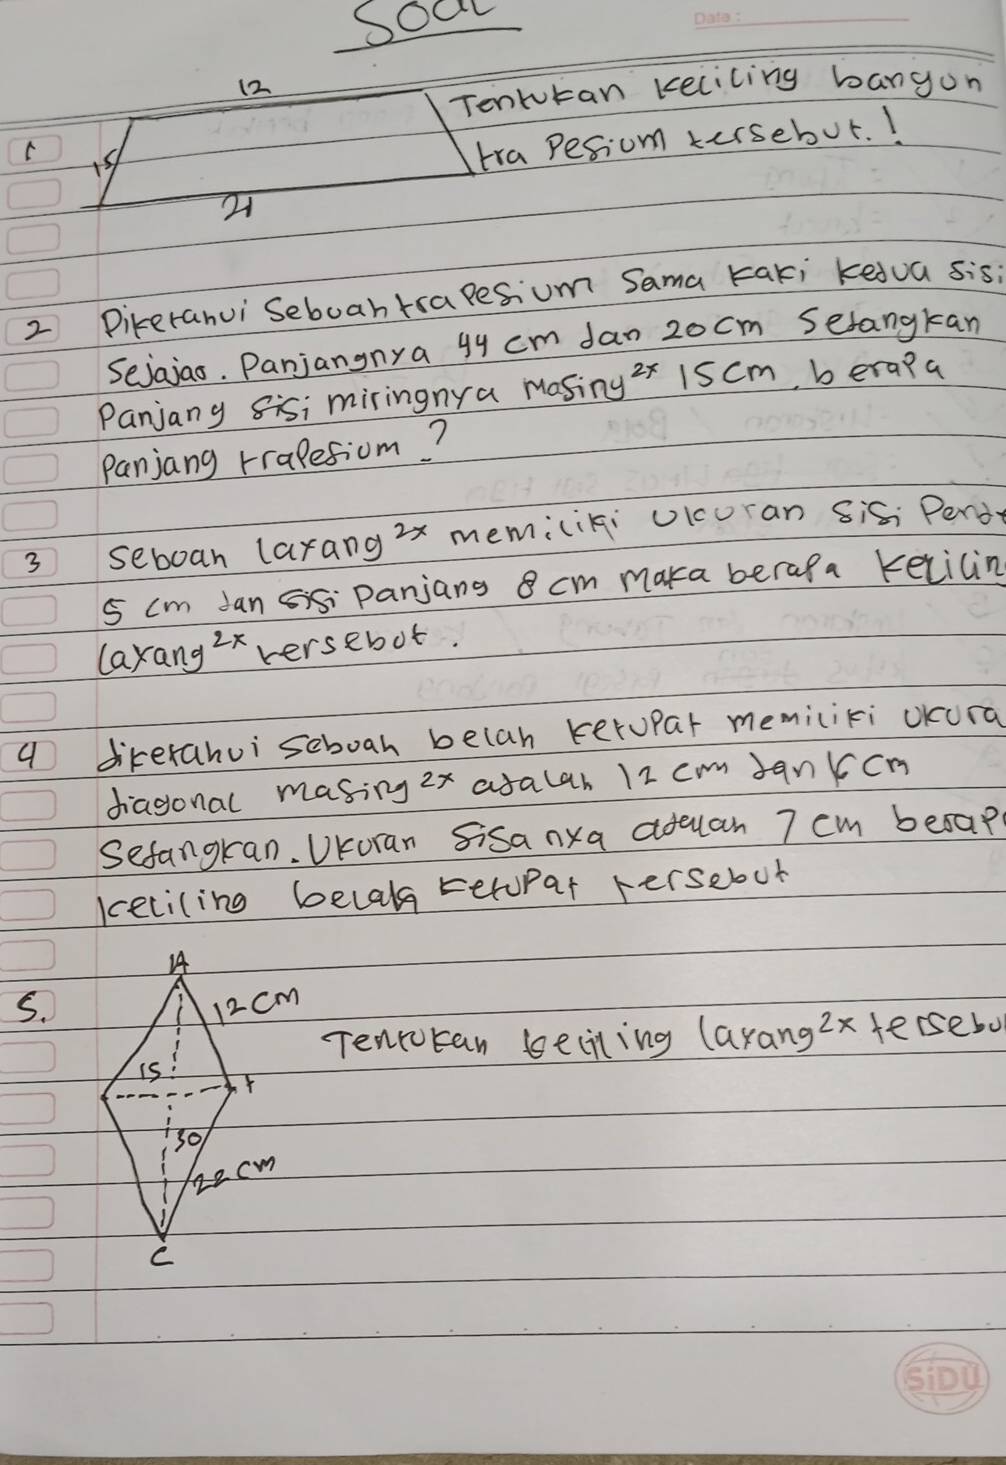 Soal
Data :
12
Tentukan keliling bangun
1
15
tra Pesium tersebut.!
21
2 Diketahui Sebuah trapesium Sama kaki kedua sisi
sejajar. Panjangnya 44 cm dan 20 cm Sedangkan
Panjang sisi miringnya masing 2x 15 cm. berapa
Panjang trapesium ?
3 sebuah layang 2x memiliki ukuran sisi Pend
5 cm dan sisi panjang 8 cm maka berapa kelilin
layang 2x tersebut.
4 diketahui sebuah belah ketupat memiliki ukura
diagonal masing 2x adalah 12 cm dan cm
Sedangkan. Ukuran Sisanya adalah 7 cm berap
keliling belah ketupat tersebut
A
5. 12 cm
Tentukan keliling layang 2x tersebu
15
30
22 cm
C
SiDU